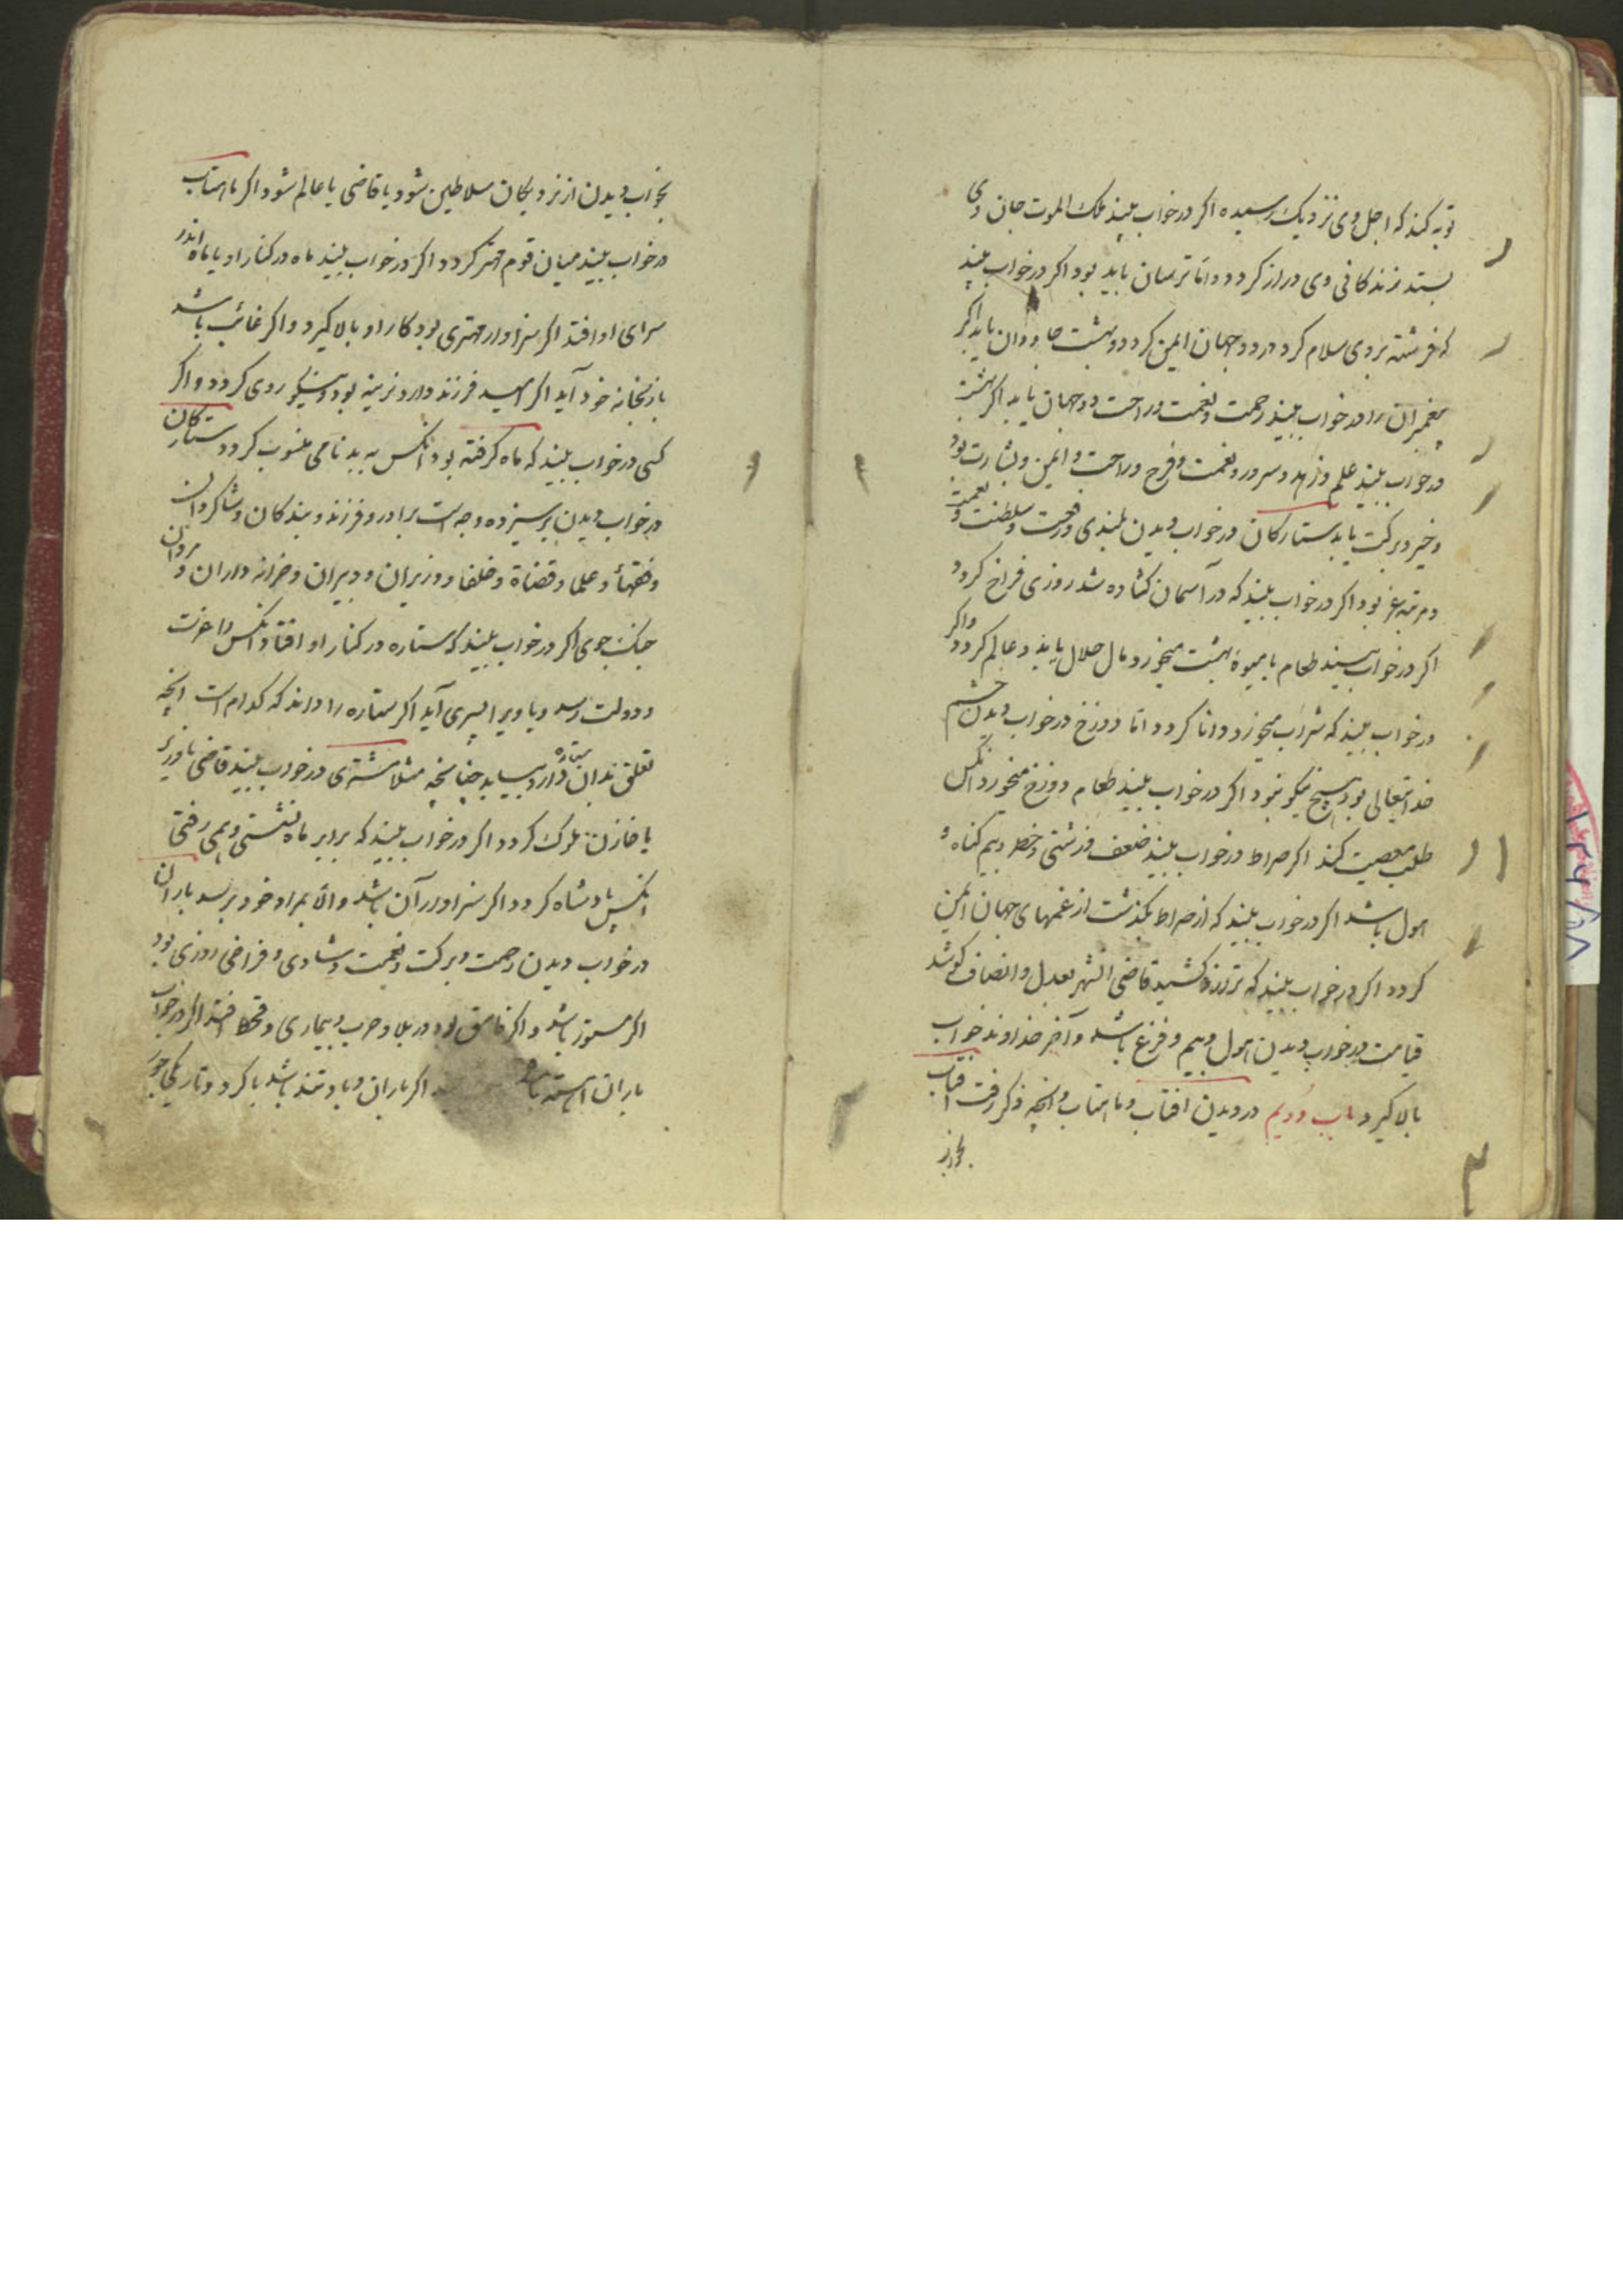 توبه کند که اجل وی نزدیک رسیده اکر در خواب بیند ملک الموت جان وی
بستد زندکانی وی دراز کردد و اما ترسان باید بود اکر در خواب بیند
که فرشته بر وی سلام کرد در دو جهان ایمن کردد و بهشت جاودان یابد اکر
پیغمبران را در خواب بیند رحمت و نعمت و راحت دو جهان یابد اکر بهشت
در خواب بیند علم و زهد و سرور و نعمت و فرح و راحت و ایمن و بشارت بود
و خیر و برکت یابد ستارکان در خواب دیدن بلندی و رفعت و سلطنت و نعمت
و مرتبه عز بود اکر در خواب بیند که در آسمان کشاده شد روزی فراخ کردد
اکر در خواب بیند طعام یا میوهٔ بهشت میخورد مال حلال یابد و عالم کردد و اکر
در خواب بیند که شراب میخورد دانا کردد اما دوزخ در خواب دیدن خشم
خدایتعالی بود هیچ نیکو نبود اکر در خواب بیند طعام دوزخ میخورد آنکس
طلب معصیت کند اکر صراط در خواب بیند ضعف و زشتی و خطر و بیم کناه و
هول باشد اکر در خواب بیند که از صراط بکذشت از غمهای جهان ایمن
کردد اکر در خواب بیند که ترازو کشید قاضی آنشهر بعدل و انصاف کوشد
قیامت در خواب دیدن هول و بیم و فزع باشد و آخر خداوند خواب
بالا کیرد باب دویم در دیدن افتاب و ماهتاب و آنچه ذکر رفت افتاب
بخواب
بخواب دیدن از نزدیکان سلاطین شود یا قاضی یا عالم شود اکر ماهتاب
در خواب بیند میان قوم مهتر کردد اکر در خواب بیند ماه در کنار او یا ماه اندر
سرای او افتد اکر سزاوار مهتری بود کار او بالا کیرد و اکر غائب باشد
باز بخانه خود آید اکر امید فرزند دارد نرینه بود و نیکو روی کردد و اکر
کسی در خواب بیند که ماه کرفته بود آنکس به بدنامی منسوب کردد ستارکان
در خواب دیدن بر سیزده وجه است برادر و فرزند و بندکان و شاکردان
و فقهأ و علما و قضاة و خلفا و وزیران و دبیران و خزانه داران و مردان
جنک جوی اکر در خواب بیند که ستاره در کنار او افتاد آنکس را عزت
و دولت رسد و یا ویرا پسری آید اکر ستاره را داند که کدام است آنچه
تعلق بدان ستاره دارد بیابد چنانچه مثلا مشتری در خواب بیند قاضی یا وزیر
یا خازن ملوک کردد اکر در خواب بیند که برابر ماه نشستی و همی رفتی
آنکس پادشاه کردد اکر سزاوار آن باشد و الا بمراد خود برسد باران
در خواب دیدن رحمت و برکت و نعمت و شادی و فراخی روزی بود
اکر مستور باشد و اکر فاسق بود در بلا و حرب و بیماری و قحط افتد اکر در خواب
باران آهسته باشد اکر باران و باد تند باشد یا کرد و تاریکی